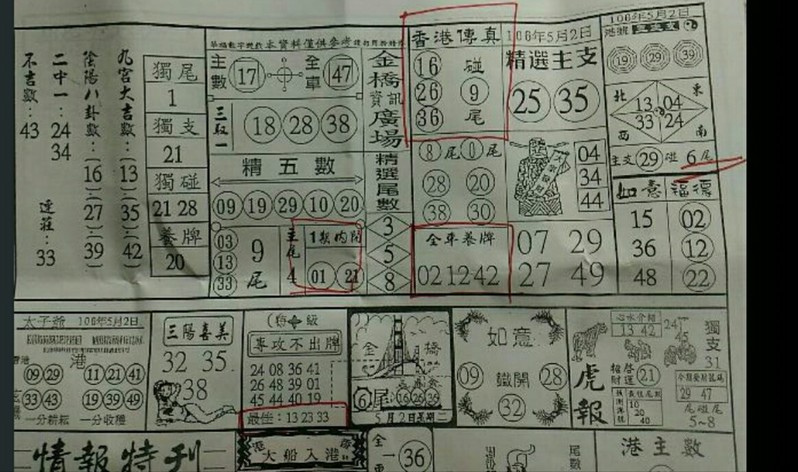 九宮大吉數：(13)(35)(42)
陰陽八卦數：(16)(27)(39)
二中一：24 34 連莊：33
不吉數：43
獨尾
1
獨支
21
獨碰
21 28
養牌
20
本資料僅供參考
主數 17
全車 47
三取一
18 28 38
精五數
09 19 29 10 20
03
13
33
9尾
主尾 4
1期內開
01 21
金橋資訊廣場
精選尾數
3
5
8
香港傳真
16 碰
26 9
36 尾
8尾 0尾
28 20
38 30
全車養牌
02 12 42
106年5月2日
精選主支
25 35
04
34
44
07 29
27 49
106年5月2日
19 29 39
北 東
13 04
33 24
西 南
主支 29 碰 6尾
如意 福德
15 02
36 12
48 22
太子爺 106年5月2日
港
09 29 11 21 41
33 43 19 39 49
一分耕耘 一分收穫
三陽喜美
32 35
38
專攻不出牌
24 08 36 41
26 48 39 01
45 44 40 19
最佳：13 23 33
金橋
6尾
16 26 39
5月2日星期二
如意
09 鐵開 28
32
虎報
心水介紹
13 42
21
10
20
40
24
45
獨支
31
29 47
尾碰尾
5~8
情報特刊
大船入港
全一 36
尾數
港主數